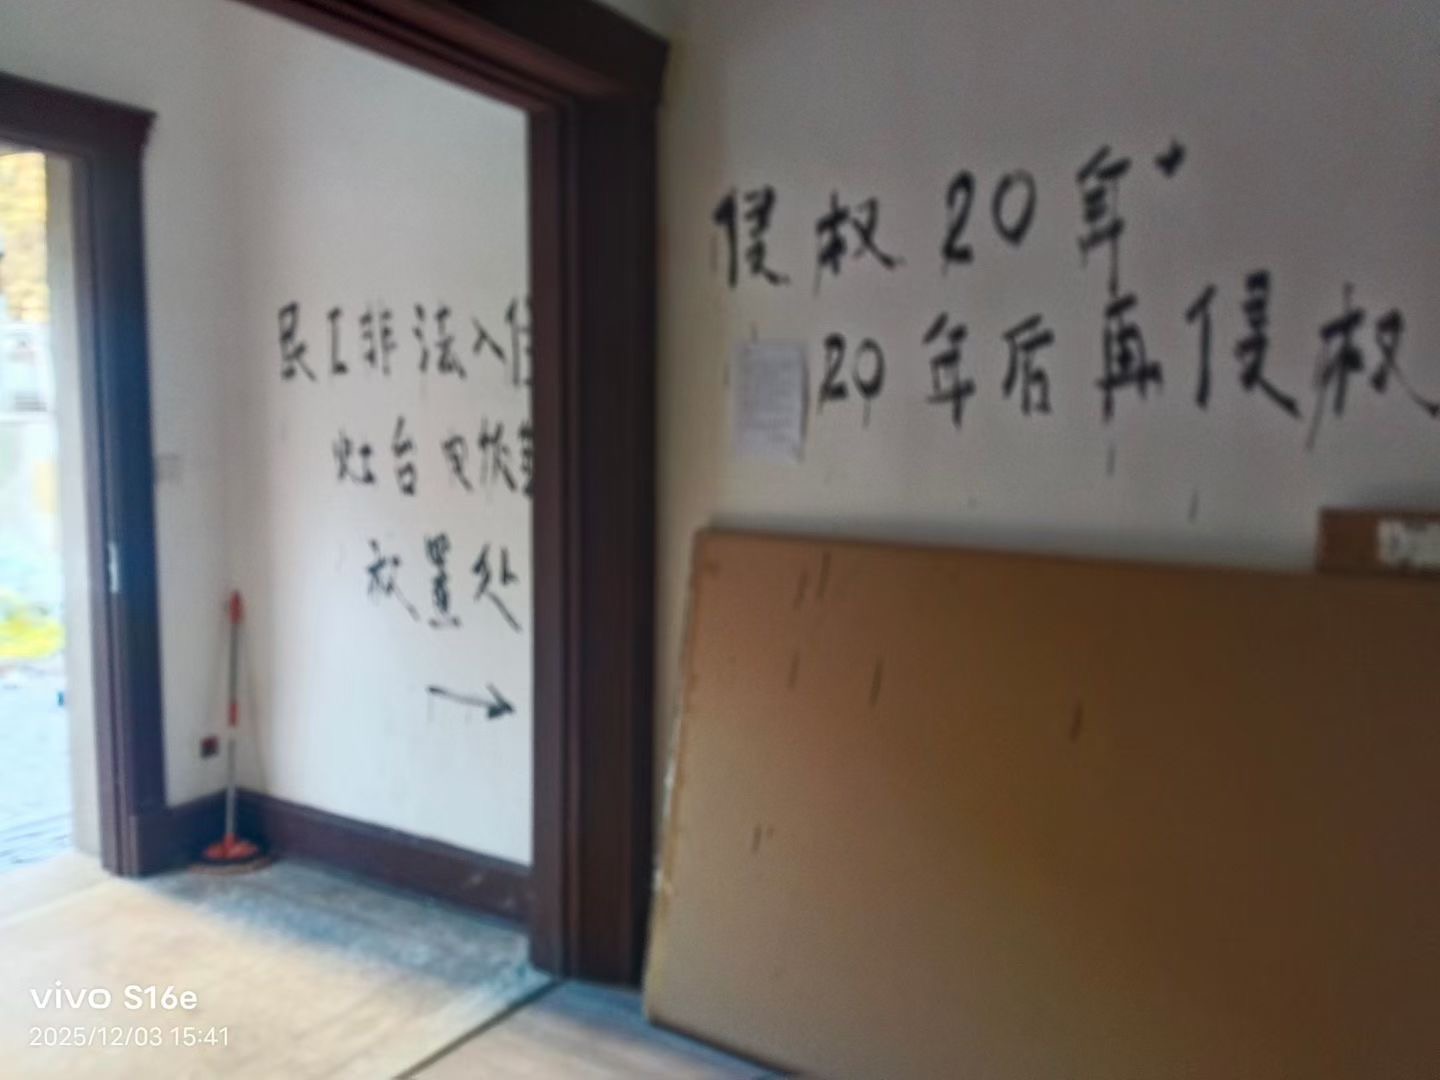 民工非法入侵
灶台 电
放置处
侵权 20年+
20年后再侵权
vivo S16e
2025/12/03 15:41